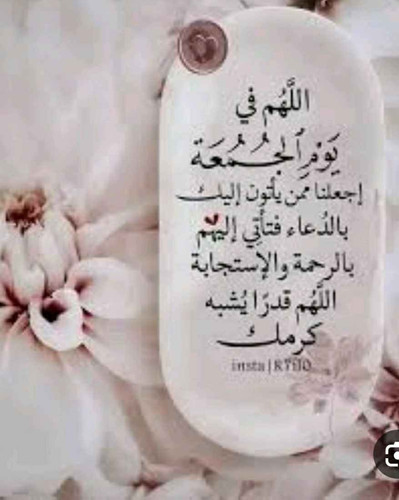 اللَّهُم في
يَوْمِ ٱلجُمُعَة
إجعلنا ممن يأتون إليك
بالدُعاء فتأتِي إليهُم
بالرحمة والإستجابة
اللَّهُم قدرًا يُشبه
كرمك
insta|